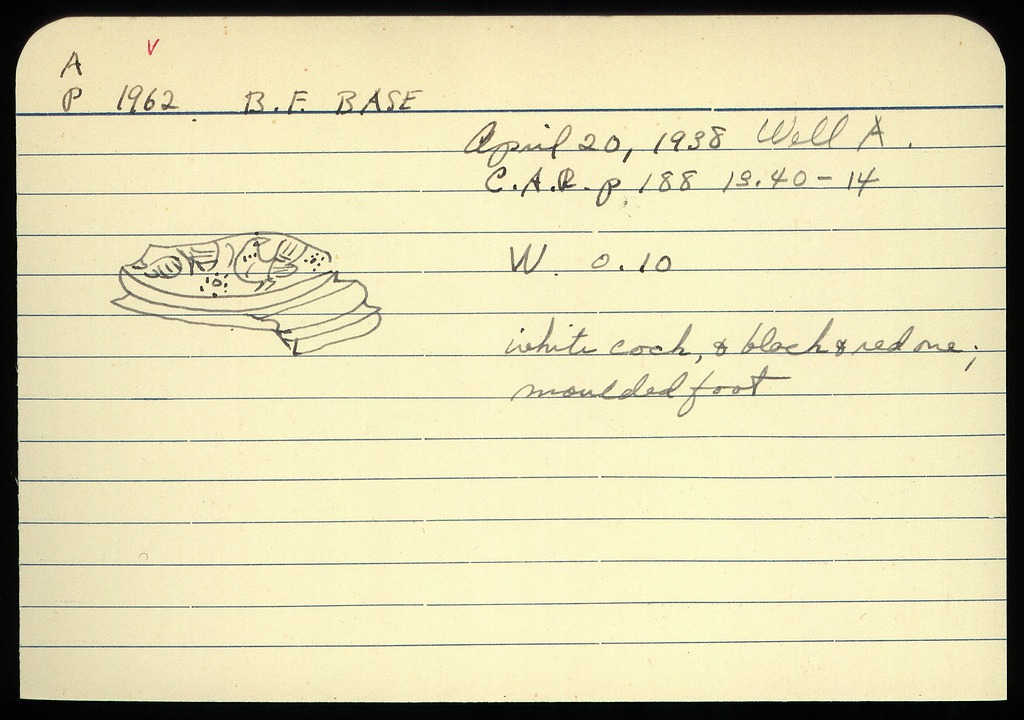 A v
P 1962 B.F. BASE
April 20, 1938 Well A.
C.A.R. p 188 19.40-14
W. 0.10
white cock, & black & red one;
moulded foot